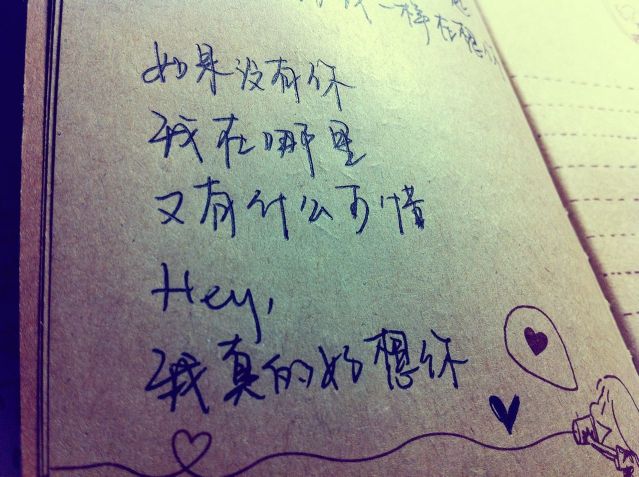 一样在想你
如果没有你
我在哪里
又有什么可惜
Hey,
我真的好想你